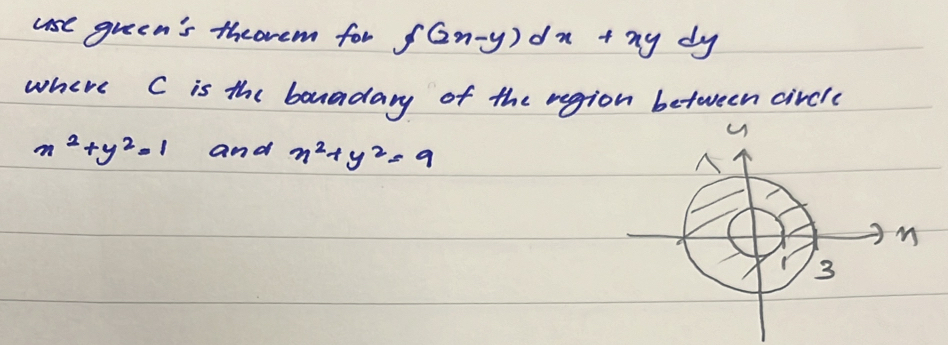 use green's theorem for ∮(2x-y)dx + xy dy
where C is the bouadary of the region between circle
x²+y²=1 and x²+y²=9
y
x
1
3